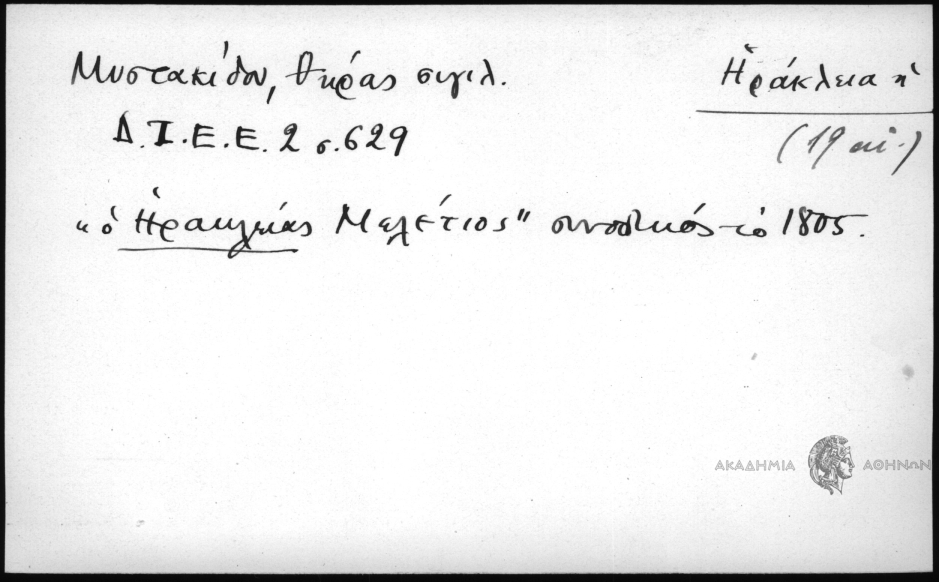 Μυστακίδου, Θήρας σιγιλ.
Ἡράκλεια ἡ
Δ.Ι.Ε.Ε. 2 σ. 629
(19 αἰ.)
«ὁ Ἡρακλείας Μελέτιος" συνοδικός τὸ 1805.
ΑΚΑΔΗΜΙΑ ΑΘΗΝΩΝ